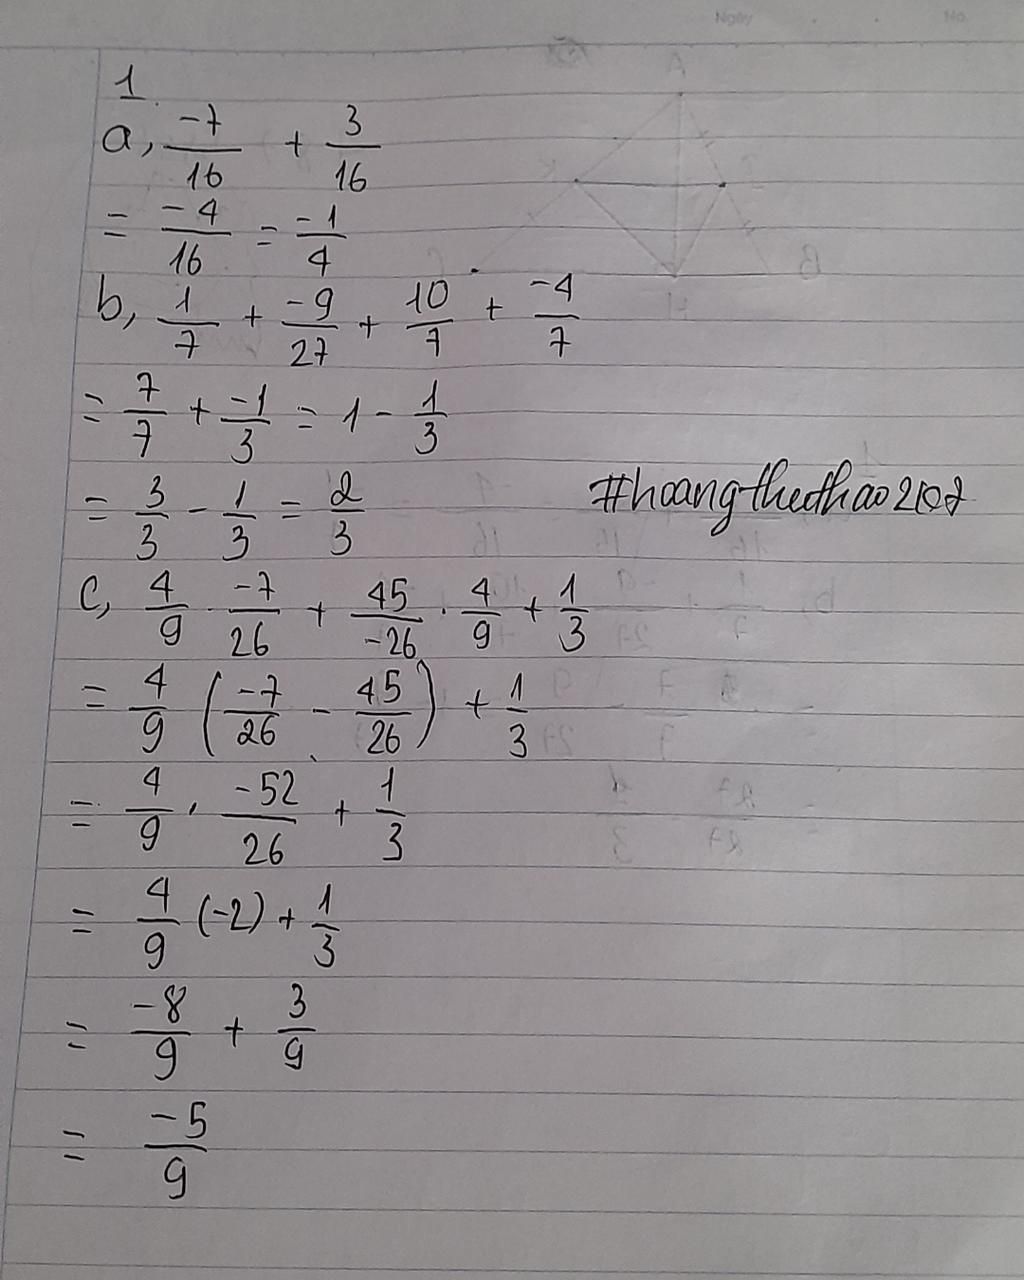 Ngày No.
1
a, -7/16 + 3/16
= -4/16 = -1/4
b, 1/7 + -9/27 + 10/7 + -4/7
= 7/7 + -1/3 = 1 - 1/3
= 3/3 - 1/3 = 2/3
#hoangthuthao2102
c, 4/9 . -7/26 + 45/-26 . 4/9 + 1/3
= 4/9 (-7/26 - 45/26) + 1/3
= 4/9 . -52/26 + 1/3
= 4/9 (-2) + 1/3
= -8/9 + 3/9
= -5/9